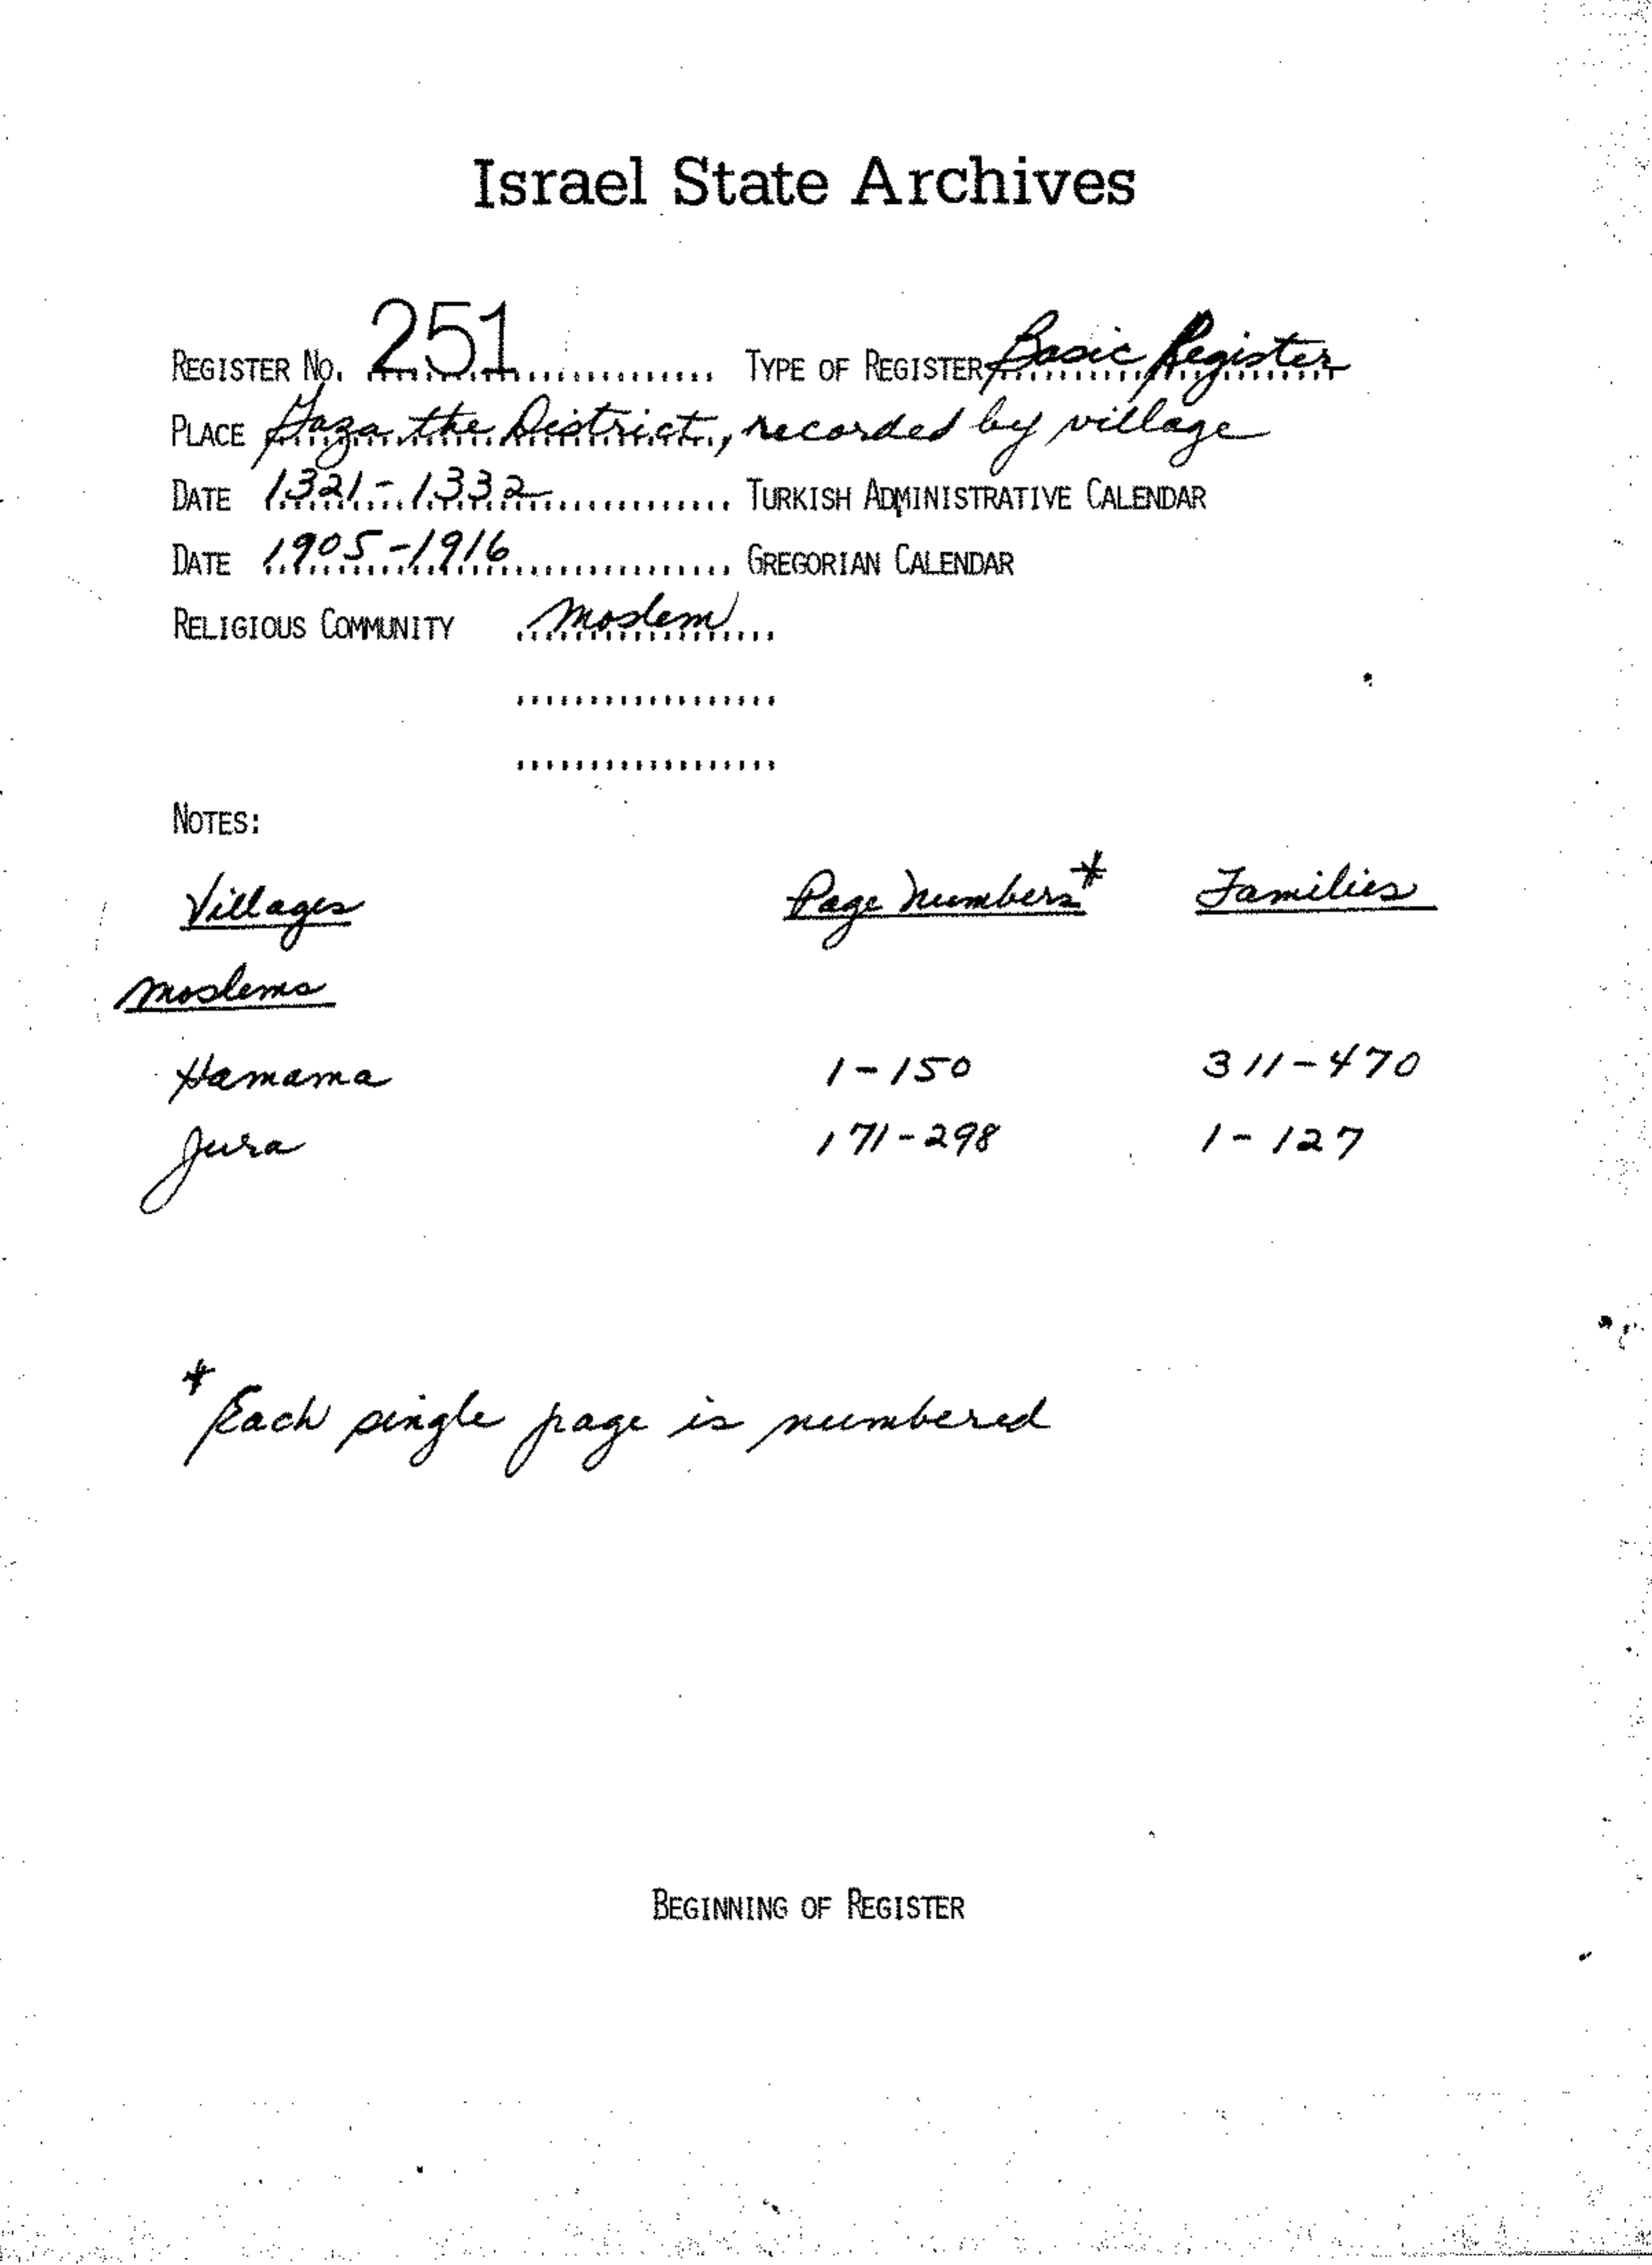 Israel State Archives
REGISTER NO. 251 TYPE OF REGISTER Basic Register
PLACE Gaza the District, recorded by village
DATE 1321-1332 TURKISH ADMINISTRATIVE CALENDAR
DATE 1905-1916 GREGORIAN CALENDAR
RELIGIOUS COMMUNITY Moslem
NOTES:
Villages Page Numbers* Families
Moslems
Hamama 1-150 311-470
Jura 171-298 1-127
* Each single page is numbered
BEGINNING OF REGISTER